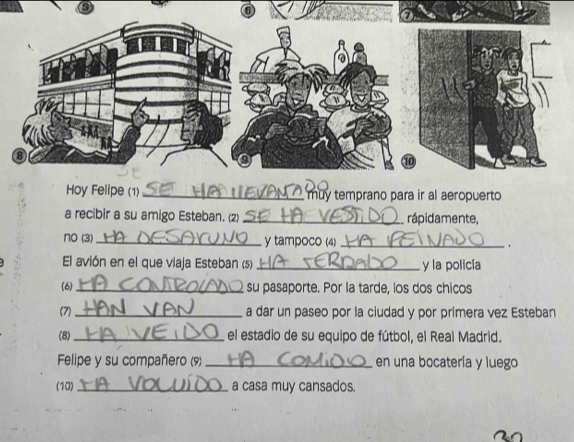 5 6 7
8 9 10
Hoy Felipe (1) SE HA LLEVANTADO muy temprano para ir al aeropuerto
a recibir a su amigo Esteban. (2) SE HA VESTIDO rápidamente,
no (3) HA DESAYUNO y tampoco (4) HA PEINADO.
El avión en el que viaja Esteban (5) HA y la policía
(6) HA CONTROLADO su pasaporte. Por la tarde, los dos chicos
(7) HAN VAN a dar un paseo por la ciudad y por primera vez Esteban
(8) HA VEIDO el estadio de su equipo de fútbol, el Real Madrid.
Felipe y su compañero (9) HA COMIDO en una bocatería y luego
(10) HA VOLUÍDO a casa muy cansados.
30